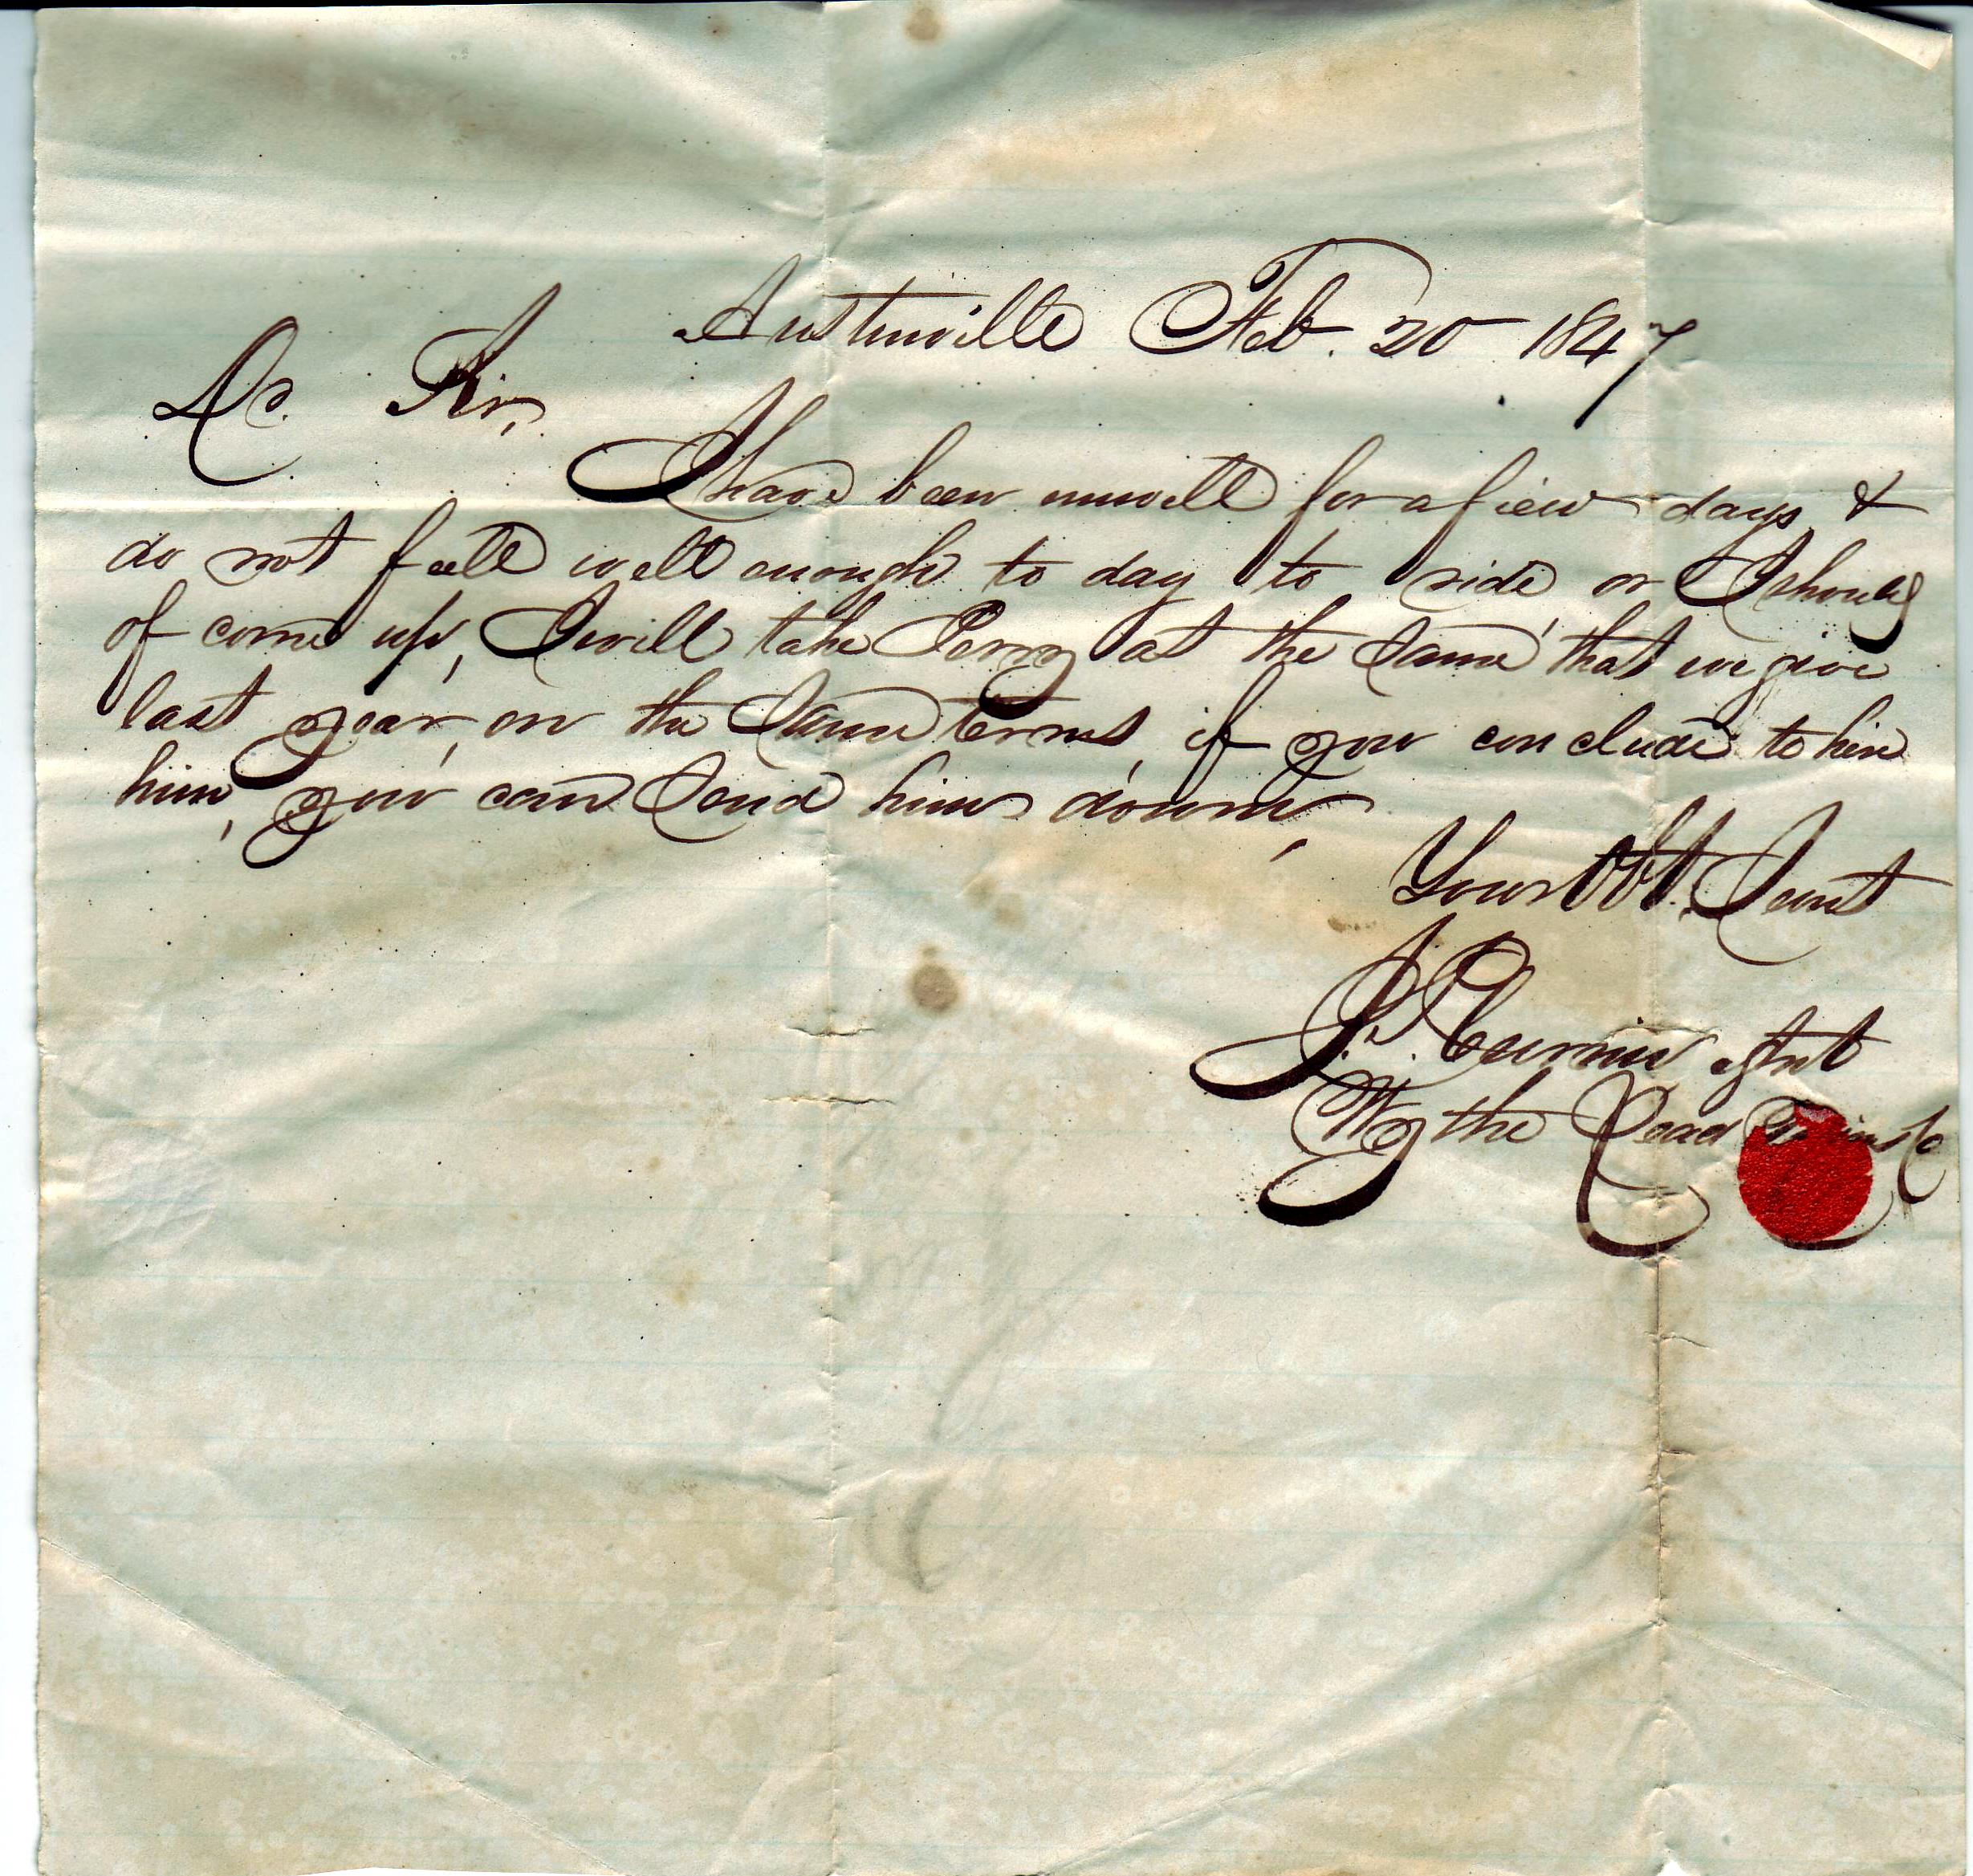 Austinville Feb. 20 1847
Dr. Sir,
I have been unwell for a few days &
do not feell well enough to day to ride, or I should
of come up, I will take Perry at the same that we give
last year, on the same terms, if you conclude to hire
him, you can send him down,
Your Obt. Servt
Agnt
Wythe Lead Co